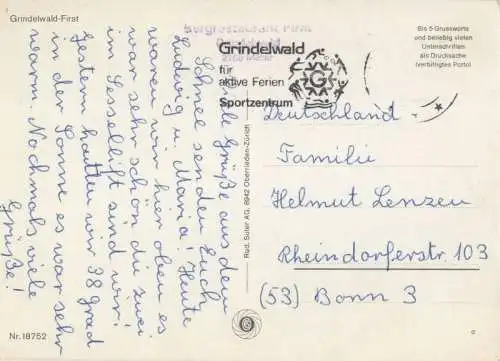 Grindelwald-First
Bergrestaurant First
2168 Meter
Grindelwald
für
aktive Ferien
Sportzentrum
G
Bis 5 Grussworte
und beliebig vielen
Unterschriften
als Drucksache
(verbilligtes Porto)
Viele Grüße aus dem
Schnee senden Euch
Ludwig u. Maria! Heute
waren wir hier oben es
war sehr schön die zwei
im Sessellift sind wir!
Gestern hatten wir 38 Grad
in der Sonne es war sehr
warm. Nochmals viele
Grüße!
Deutschland
Familie
Helmut Lenzen
Rheindorferstr. 103
(53) Bonn 3
Rud. Suter AG, 8942 Oberrieden-Zürich
Nr. 18752